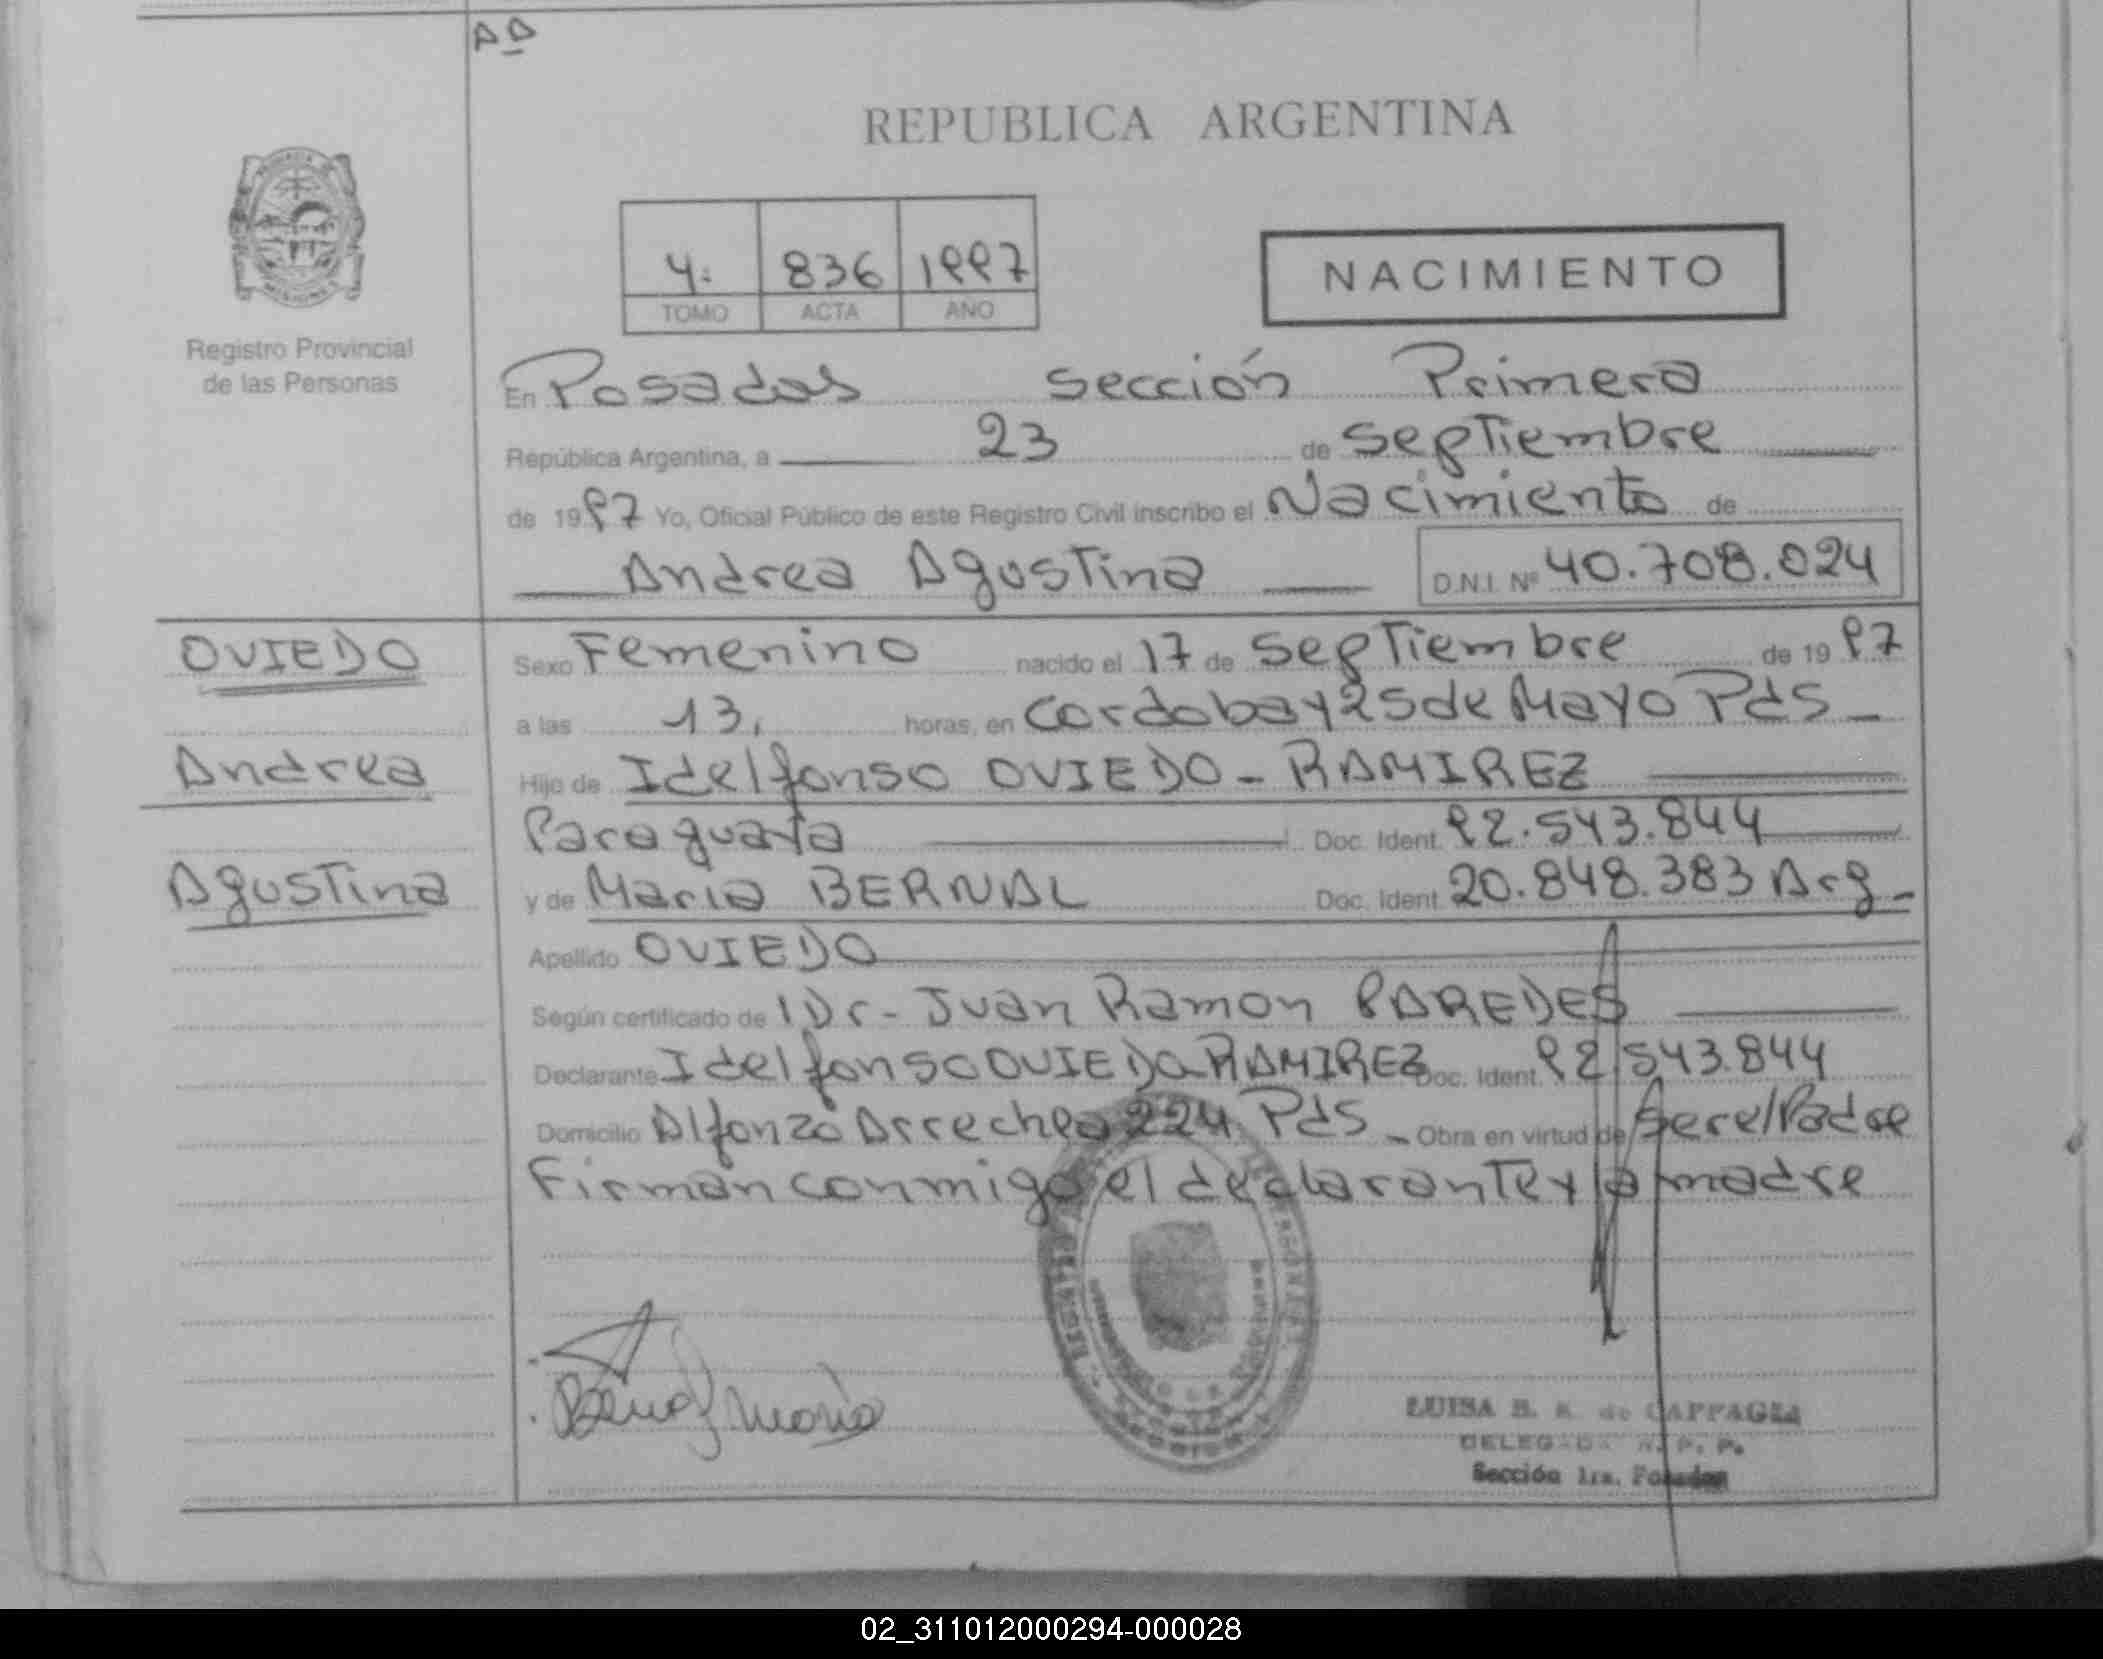 AD
REPUBLICA ARGENTINA
4: 836 1997
TOMO ACTA AÑO
NACIMIENTO
Registro Provincial
de las Personas
En Posadas sección Primera
República Argentina, a 23 de septiembre
de 1997 Yo, Oficial Público de este Registro Civil inscribo el Nacimiento de
Andrea Agustina D.N.I. Nº 40.708.024
OVIEDO
Andrea
Agustina
Sexo Femenino nacido el 17 de septiembre de 1997
a las 13, horas, en Cordoba y 25 de Mayo Pds
Hijo de Idelfonso OVIEDO - RAMIREZ
Paraguaya Doc. Ident. 92.543.844
y de Maria BERNAL Doc. Ident. 20.848.383 Arg
Apellido OVIEDO
Según certificado de Dr - Juan Ramon PAREDES
Declarante Idelfonso OVIEDO RAMIREZ Doc. Ident. 92.543.844
Domicilio Alfonzo Arrechea 224 Pds - Obra en virtud de ser el Padre
Firman conmigo el declarante y la madre
Bernal Maria
LUISA de CAPPAGLI
DELEGADA R. P. P.
Sección 1ra. Posadas
02_311012000294-000028